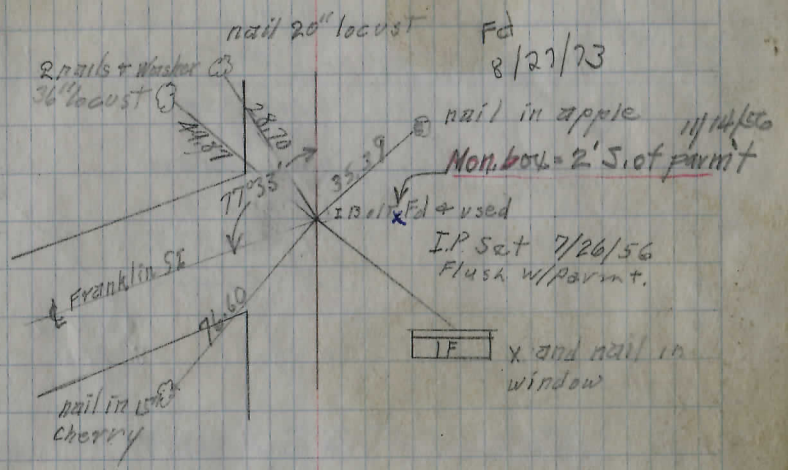 nail 20" locust
Fd
8/27/73
2 nails & washer
36" locust
44.87
28.70
nail in apple
11/14/56
Mon. box = 2' S. of parm't
77°33'
35.39
I Bolt Fd & used
I.P Set 7/26/56
Flush w/parmt.
℄ Franklin St
76.60
1F
X and nail in
window
nail in 15"
cherry